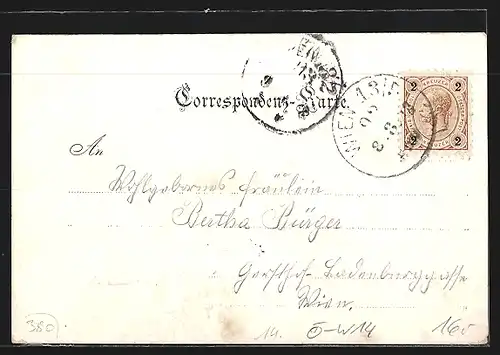 Correspondenz-Karte.
2 KREUZER 2
2 2
WIEN
An
Wohlgebornes Fräulein
Bertha Bürger
Gersthof - Ladenburggasse
Wien.
380
14. Ö-W14 160